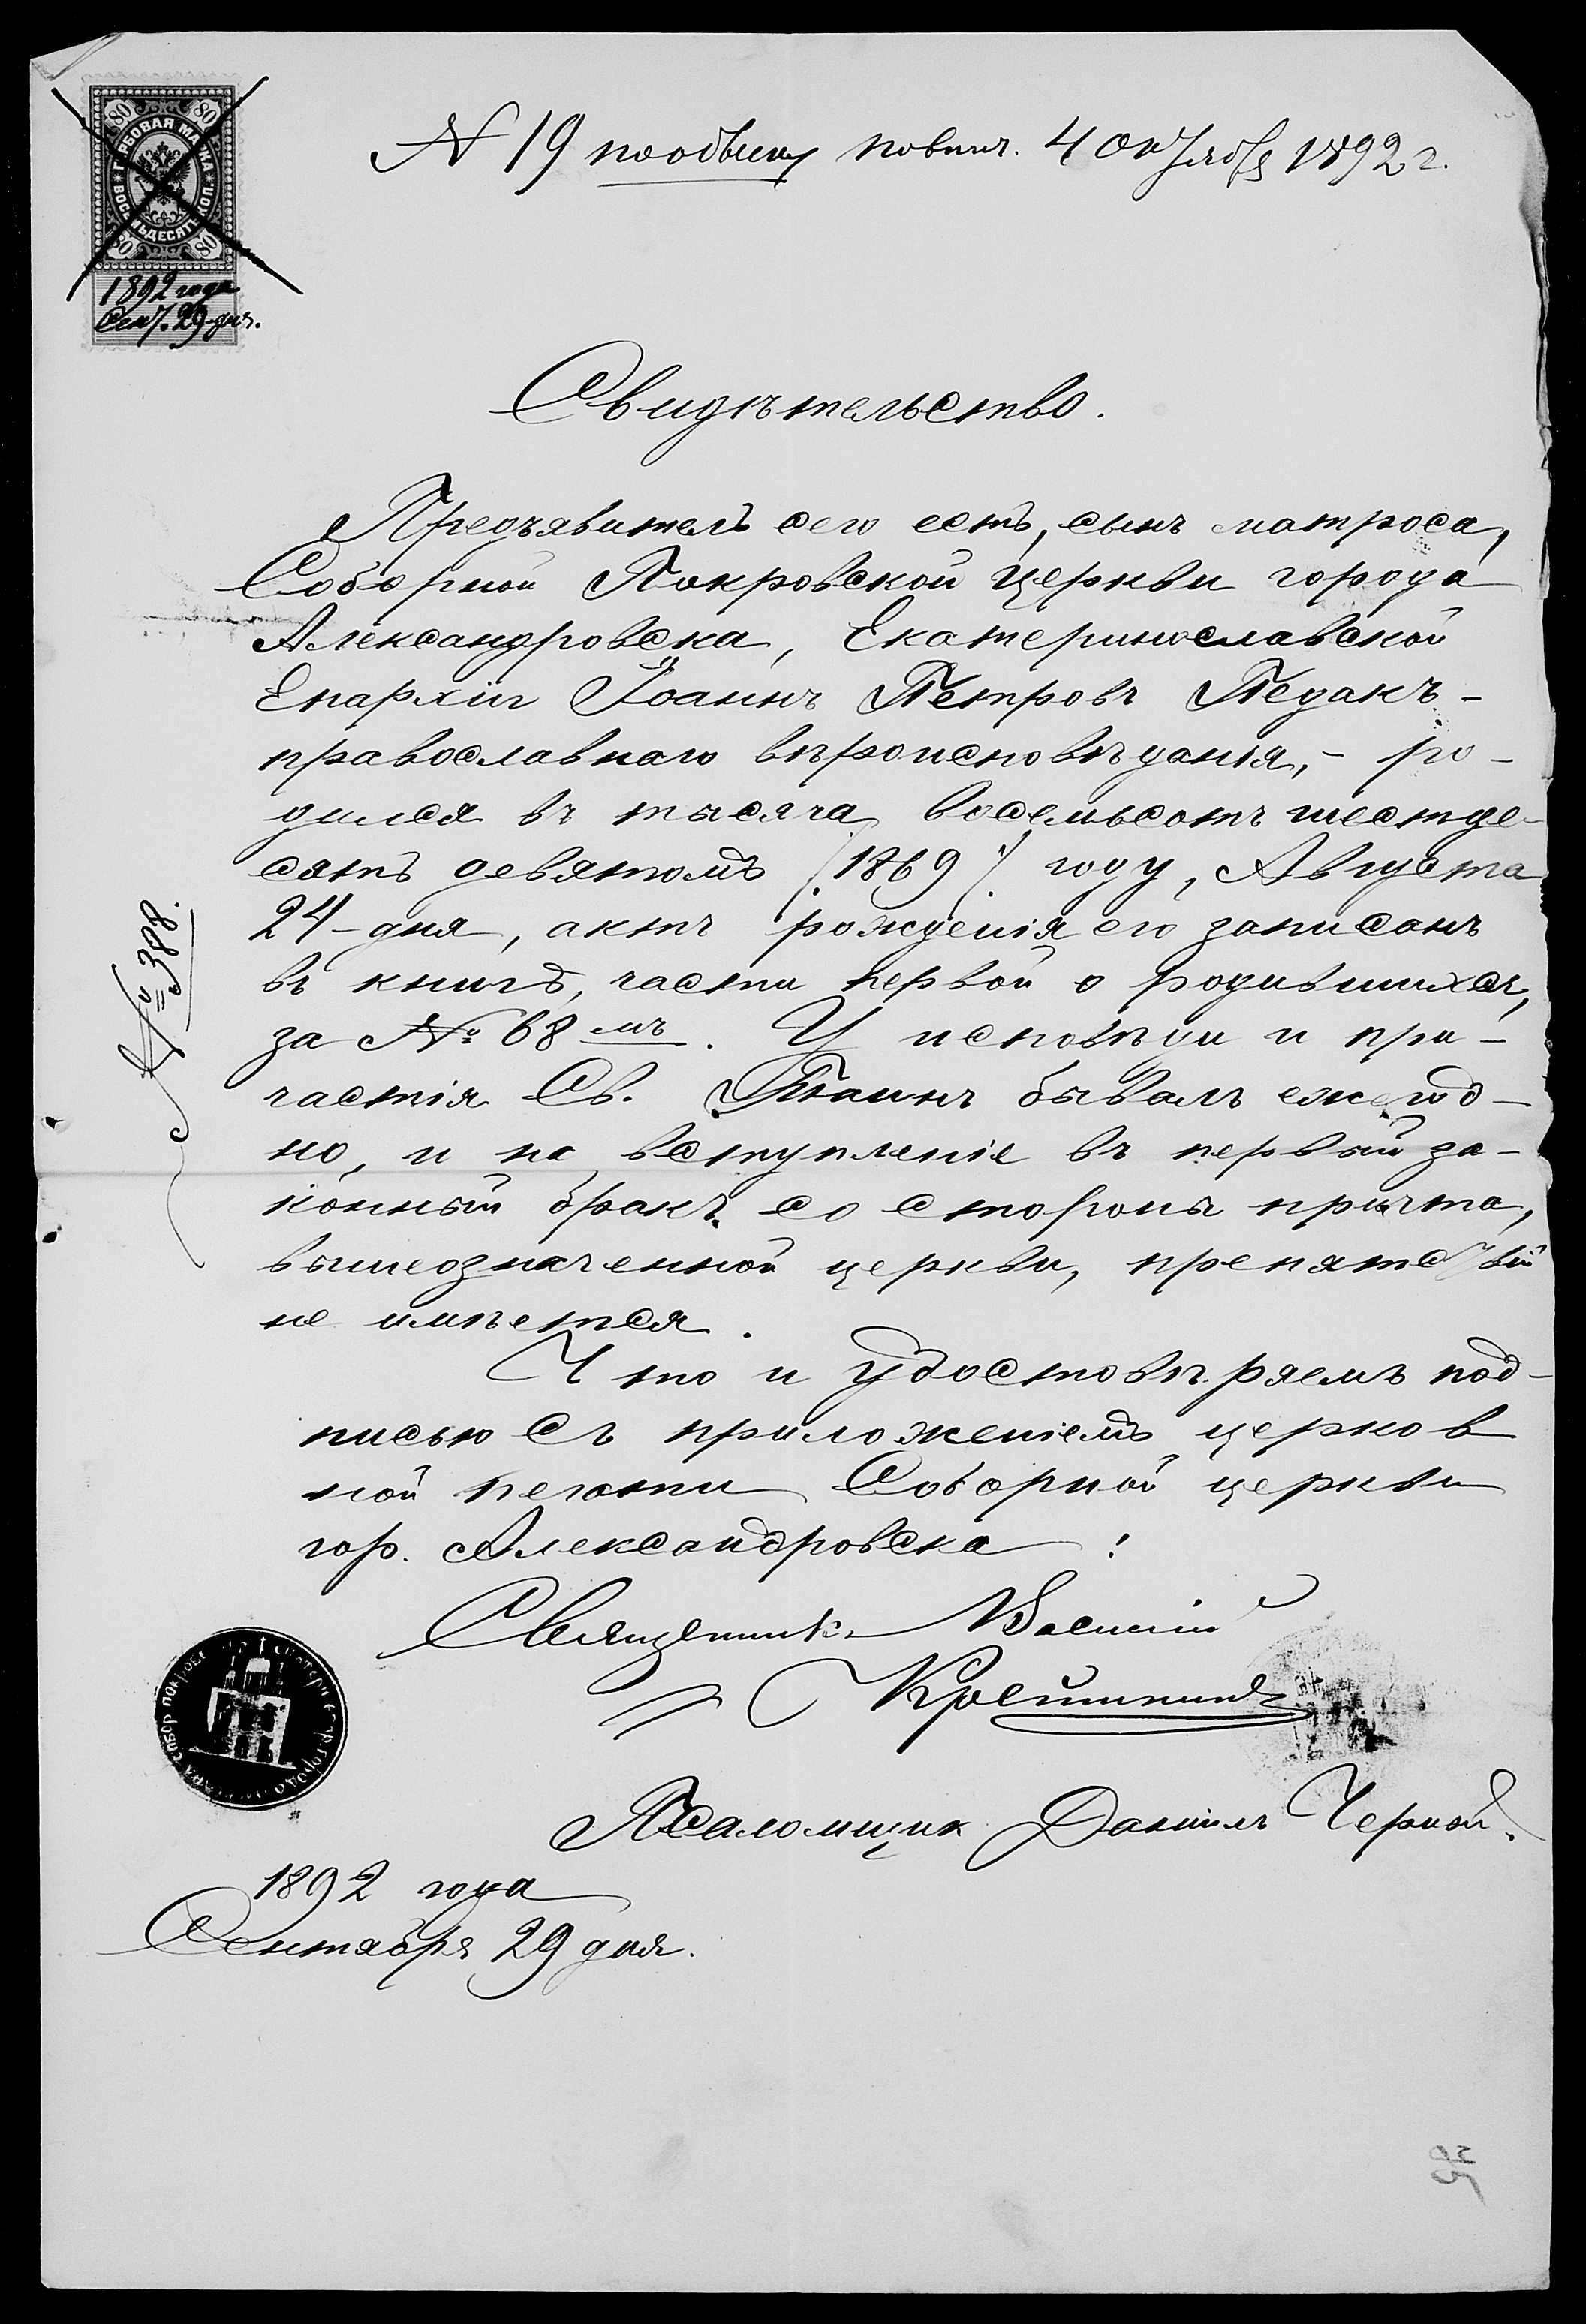 № 19 по обыску повенч. 4 октября 1892 г.
80 80
ГЕРБОВАЯ МАРКА
ВОСЕМЬДЕСЯТЪ КОП.
80 80
1892 года
Сент. 29 дня.
Свидѣтельство.
Предъявитель сего есть, сынъ матроса,
Соборной Покровской церкви города
Александровска, Екатеринославской
Епархіи Іоаннъ Петровъ Педакъ -
православнаго вѣроисповѣданія, - ро-
дился въ тысяча восемьсотъ шестде-
сятъ девятомъ /1869/ году, Августа
24 - дня, актъ рожденія его записанъ
въ книгѣ, части первой о родившихся,
за № 68 мъ. У исповѣди и при-
частія Св. Таинъ бывалъ ежегод-
но, и на вступленіе въ первый за-
конный бракъ со стороны причта,
вышеозначенной церкви, препятствій
не имѣется.
№ 388.
Что и удостовѣряемъ под-
писью съ приложеніемъ церков
ной печати Соборной церкви
гор. Александровска
Священникъ Василій
Псаломщик Даніилъ Черной.
1892 года
Сентября 29 дня.